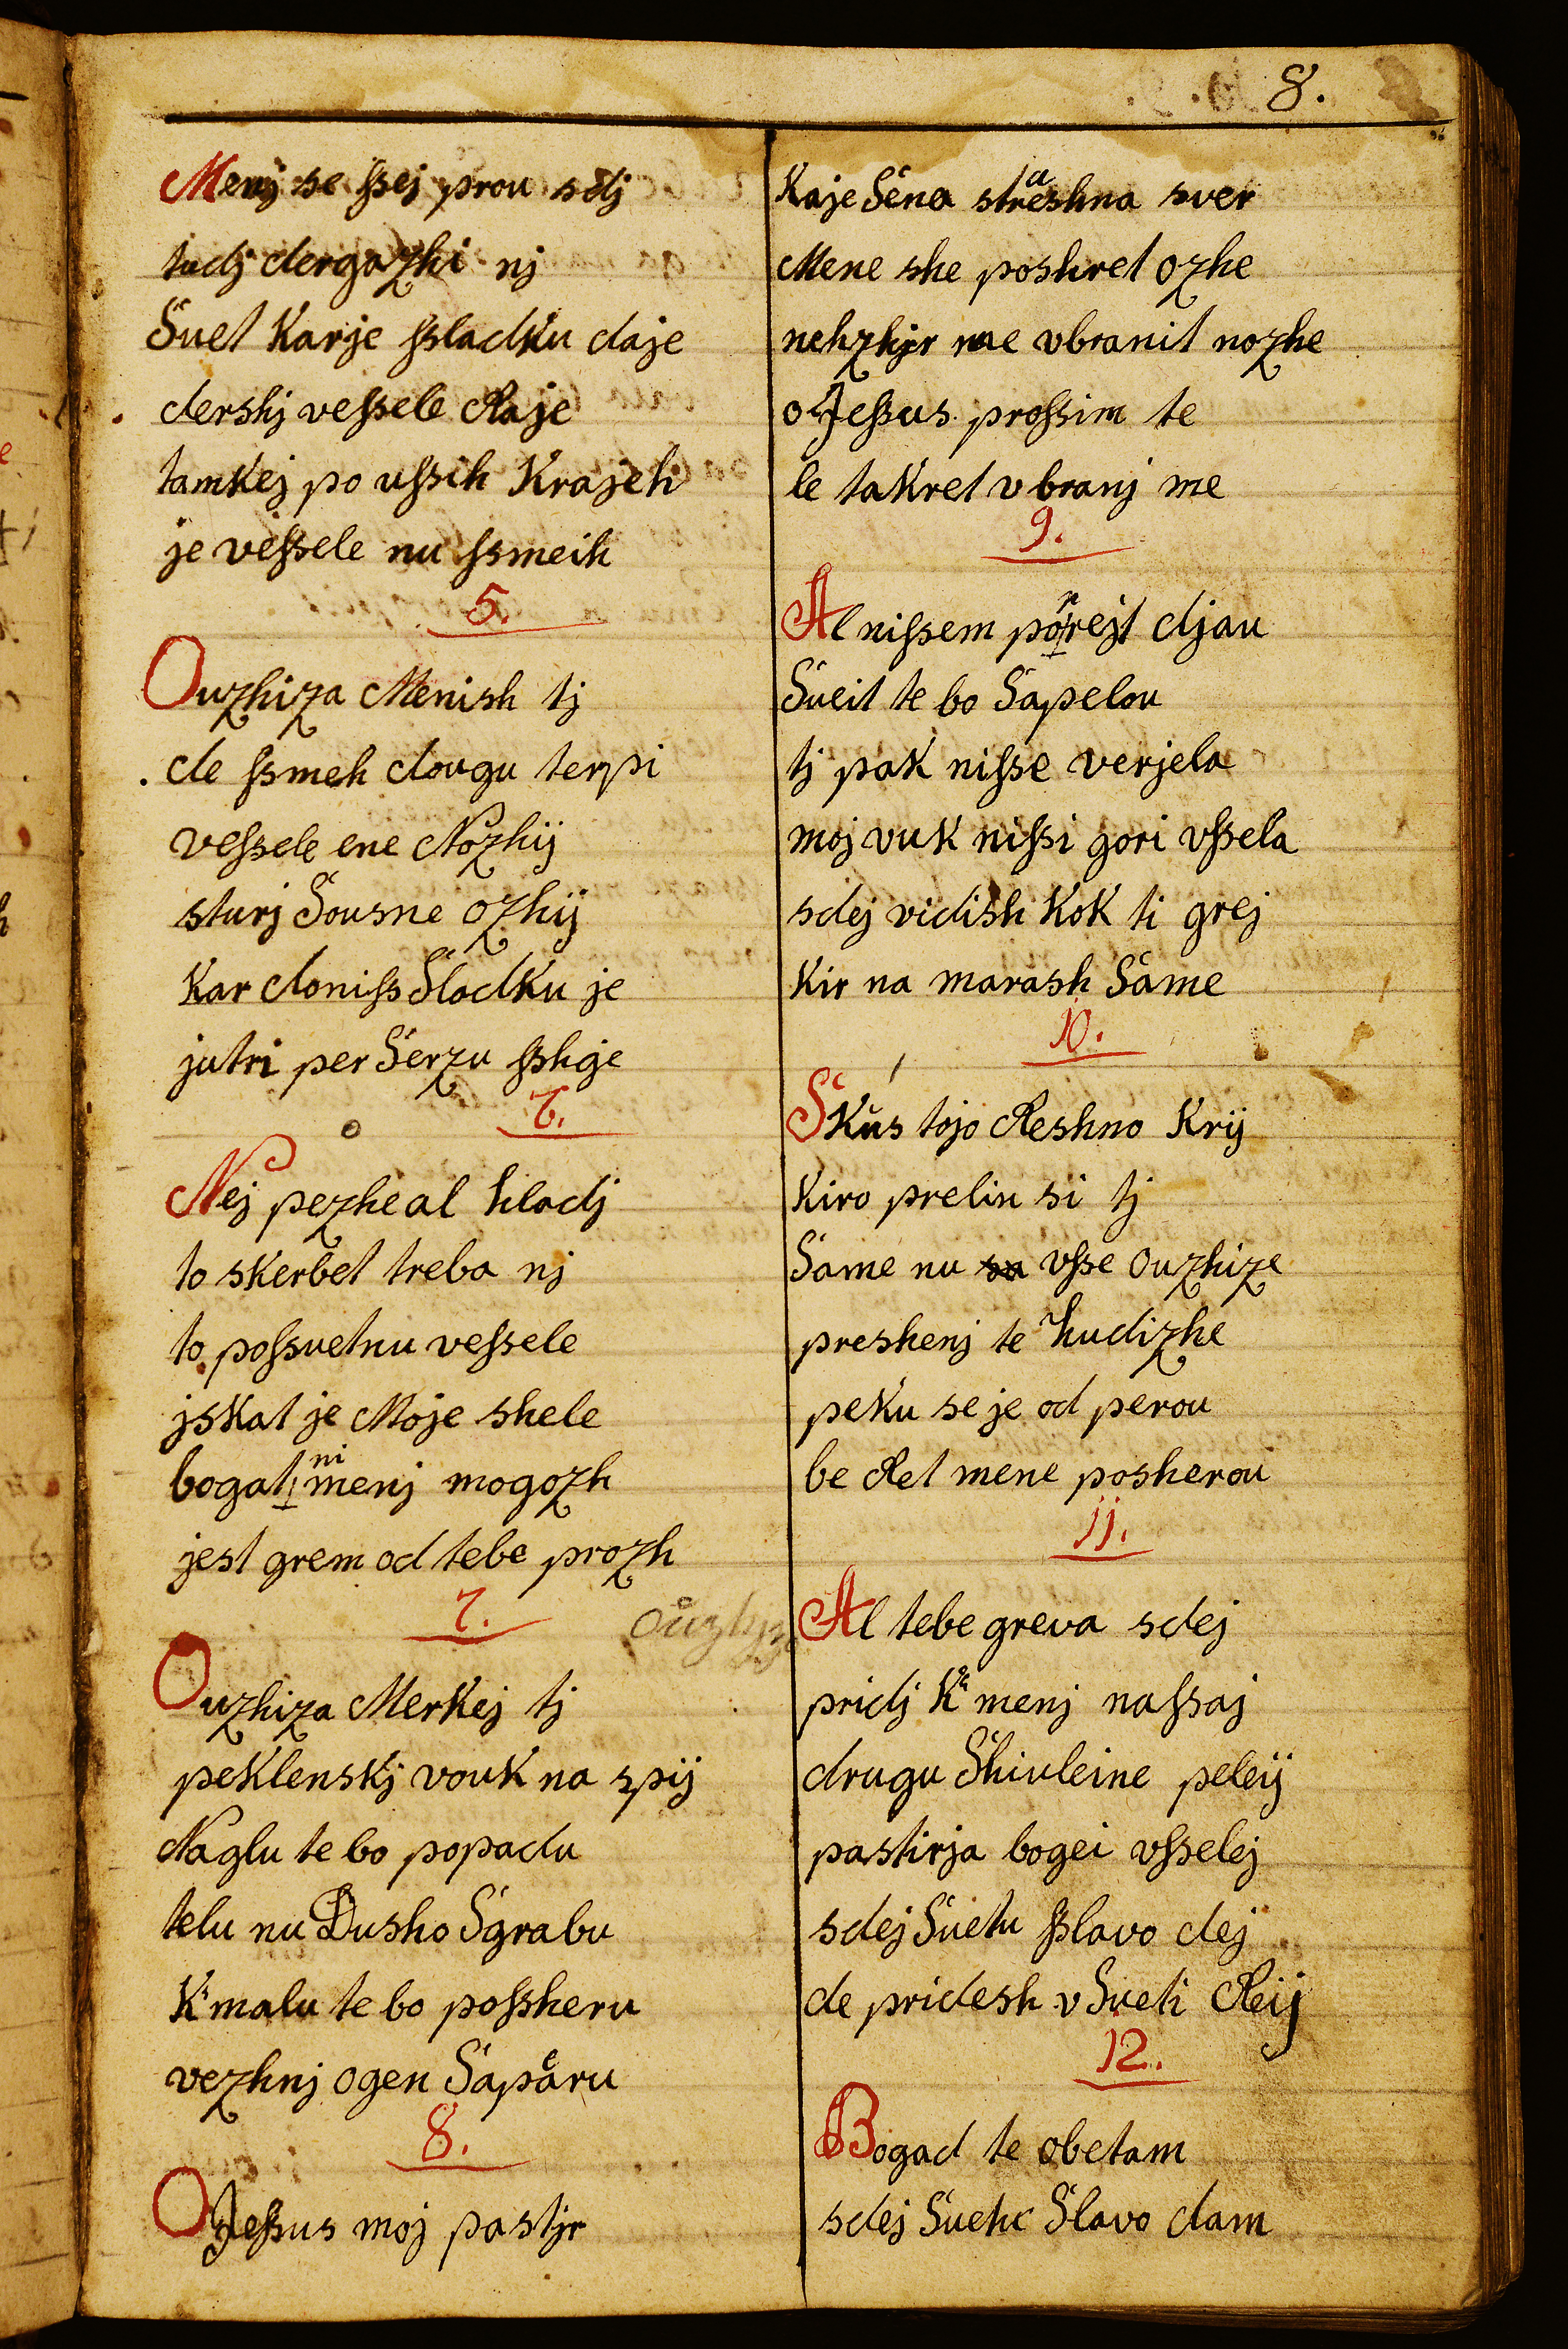 8.
Menj se ſsej prou sdj
tudj dergazhi nj
Suet Karje ſsladku daje
dershj veſsele Raje
tamkej po uſsih Krajeh
je veſsele nu ſsmeih
5.
Ouzhiza Menish tj
de ſsmeh dougu terpi
veſsele ene Nozhij
sturj Sousne ozhij
Kar doniſs Sladku je
jutri per Serzu ſshge
6.
Nej pezhe al hladj
to skerbet treba nj
to poſsuetnu veſsele
jskat je Moje shele
bogat ni menj mogozh
jest grem od tebe prozh
7.
Ouzhiza Merkej tj
peklenskj vouk na spij
Naglu te bo popadu
telu nu Dusho Sgrabu
K'malu te bo poſsheru
vezhnj ogen Saparu
8.
O Jeſsus moj pastjr
Kaje Sena strashna sver
Mene she poshret ozhe
nehzhjr me vbranit nozhe
o Jeſsus proſsim te
le takret vbranj me
9.
Al niſsem porrejt djau
Sueit te bo Sapelou
tj pak niſse verjela
moj vuk niſsi gori vſsela
sdej vidish Kok ti grej
Kir na marash Same
10.
Skus tojo Reshno Krij
Kiro prelin si tj
Same nu vſse Ouzhize
preshenj te hudizhe
peku se je od perou
be Ret mene posherou
11.
Al tebe greva sdej
pridj K' menj naſsaj
drugu Shiuleine peleij
pastirja bogei vſselej
sdej Suetu ſslavo dej
de pridesh v Sueti Reij
12.
Bogad te obetam
sdej Suetu Slavo dam